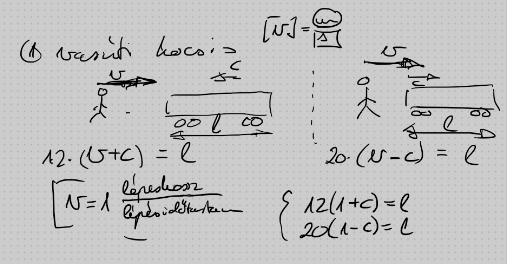 ① vasúti kocsi:
[v] = m/s
v c
l
12·(v+c) = l
v c
l
20·(v-c) = l
v = 1 lépéshossz / lépésidőtartam
12(1+c) = l
20(1-c) = l